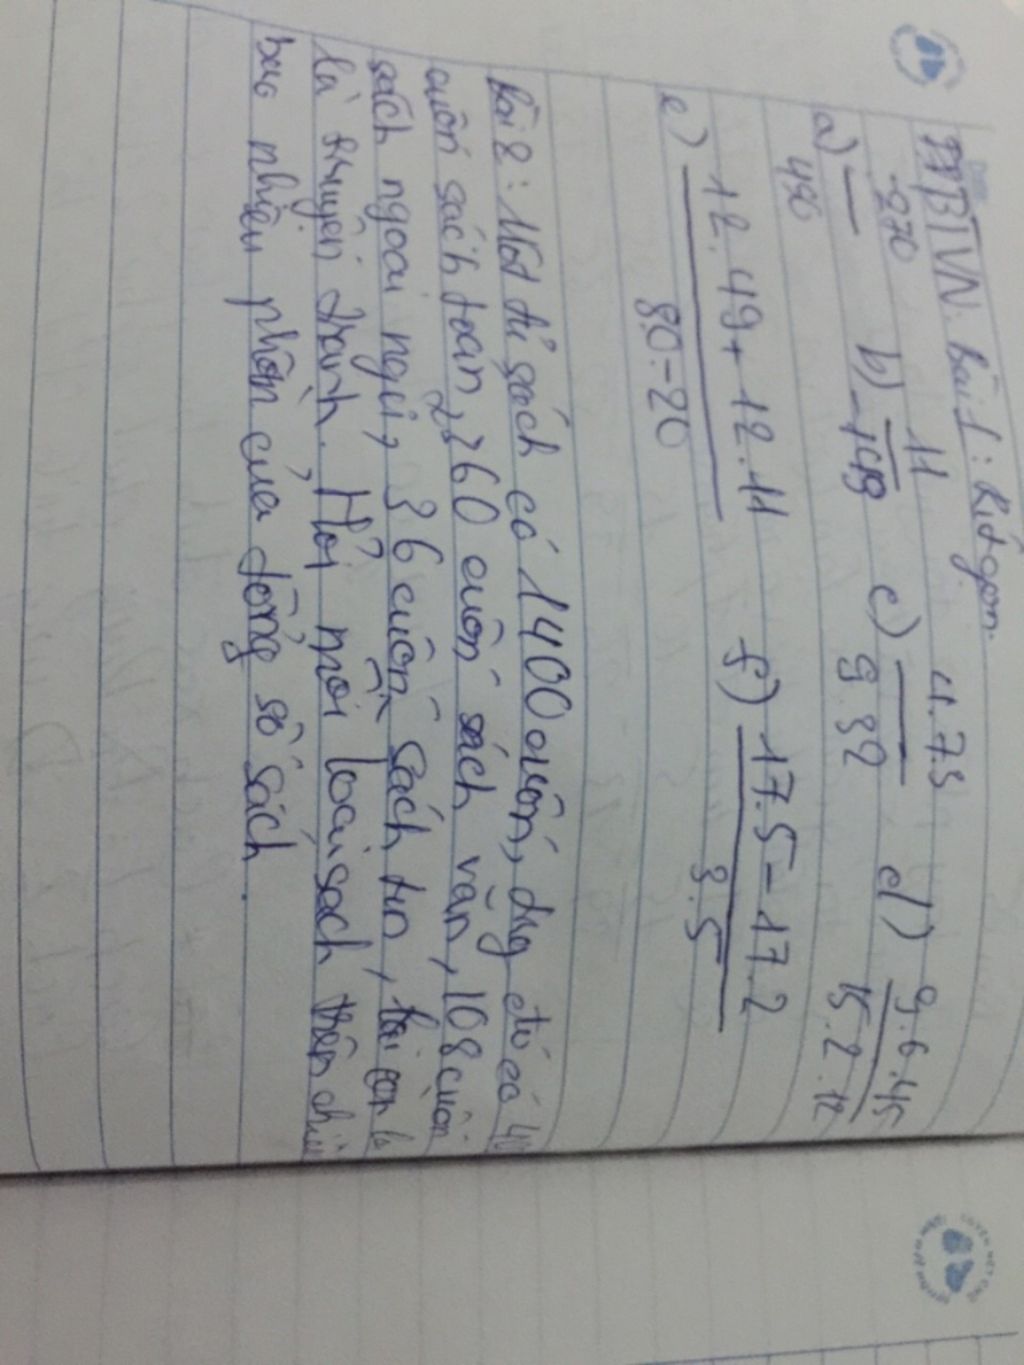 BTVN. Bài 1: Rút gọn.
a) -270/450 b) 11/-143 c) 4.7.3/9.32 d) 9.6.45/15.2.12
e) 12.49+12.11/80-20 f) 17.5-17.2/3.5
Bài 2: Một tủ sách có 1400 cuốn, trg đó có
cuốn sách toán, 360 cuốn sách văn, 108 cuốn
sách ngoại ngữ, 36 cuốn sách tin, còn
là truyện tranh. Hỏi mỗi loại sách trên chiếm
bao nhiêu phần của tổng số sách.